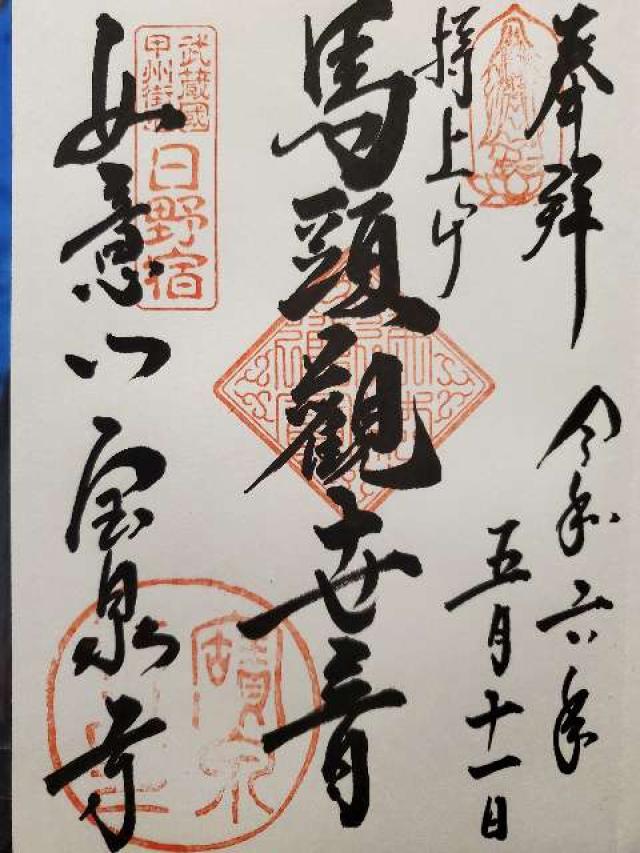 奉拝
令和六年
五月十一日
捋上ケ
馬頭観世音
武蔵國
甲州街道
日野宿
如意山宝泉寺